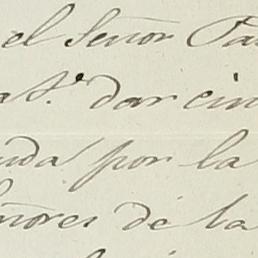 el Señor Pa
at.e dar cin
uda por la
ñores de la